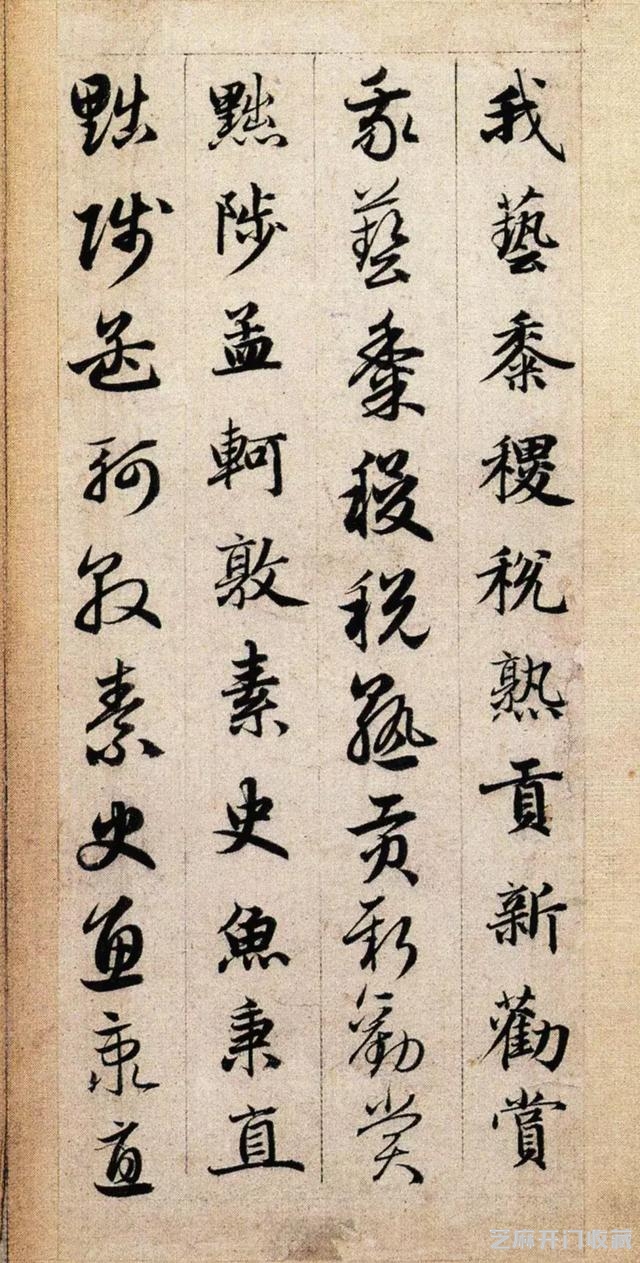 我藝黍稷稅熟貢新勸賞
我藝黍稷稅熟貢新勸賞
黜陟孟軻敦素史魚秉直
黜陟孟軻敦素史魚秉直
芝麻开门收藏